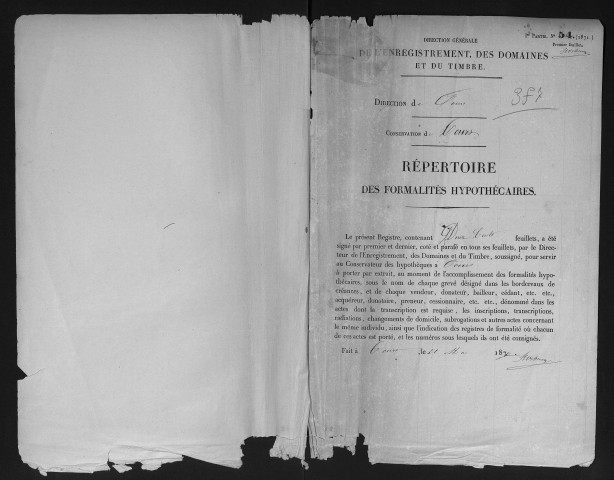 2e Partie. N° 54 (1871.)
Premier feuillet.
DIRECTION GÉNÉRALE
DE L'ENREGISTREMENT, DES DOMAINES
ET DU TIMBRE.
Direction de Tours 387
Conservation de Tours
RÉPERTOIRE
DES FORMALITÉS HYPOTHÉCAIRES.
Le présent Registre, contenant Deux Cents feuillets, a été
signé par premier et dernier, coté et parafé en tous ses feuillets, par le Direc-
teur de l'Enregistrement, des Domaines et du Timbre, soussigné, pour servir
au Conservateur des hypothèques à Tours
à porter par extrait, au moment de l'accomplissement des formalités hypo-
thécaires, sous le nom de chaque grevé désigné dans les bordereaux de
créances, et de chaque vendeur, donateur, bailleur, cédant, etc. etc.,
acquéreur, donataire, preneur, cessionnaire, etc. etc., dénommé dans les
actes dont la transcription est requise, les inscriptions, transcriptions,
radiations, changements de domicile, subrogations et autres actes concernant
le même individu, ainsi que l'indication des registres de formalité où chacun
de ces actes est porté, et les numéros sous lesquels ils ont été consignés.
Fait à Tours le 21 187